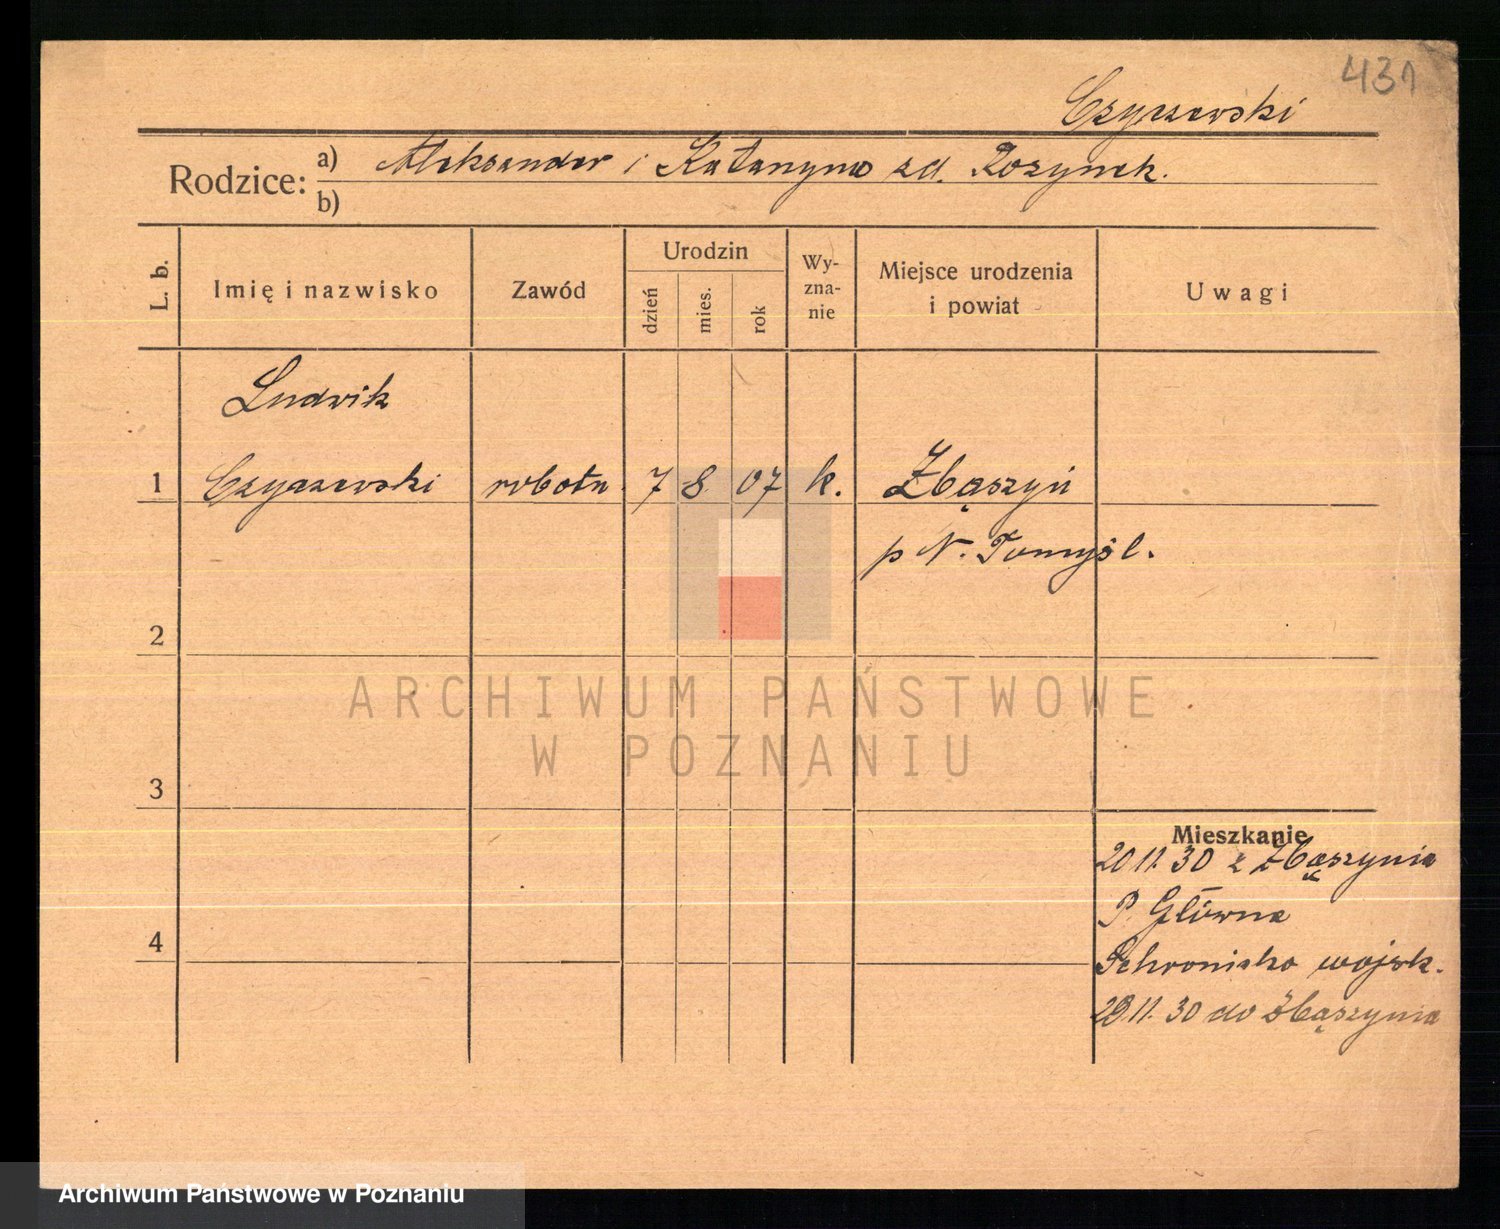 431
Czyszewski
Rodzice: a) Aleksander i Katarzyna zd. Rozynek.
b)
L. b.
Imię i nazwisko
Zawód
Urodzin
dzień
mies.
rok
Wy-
zna-
nie
Miejsce urodzenia
i powiat
Uwagi
Ludwik
1 Czyszewski robotn. 7 8 07 k. Zbąszyń
p N. Tomyśl.
2
3
4
Mieszkanie
20 11. 30 z Zbąszynia
P. Główna
Schronisko wojsk.
29.11. 30 do Zbąszynia
ARCHIWUM PAŃSTWOWE
W POZNANIU
Archiwum Państwowe w Poznaniu